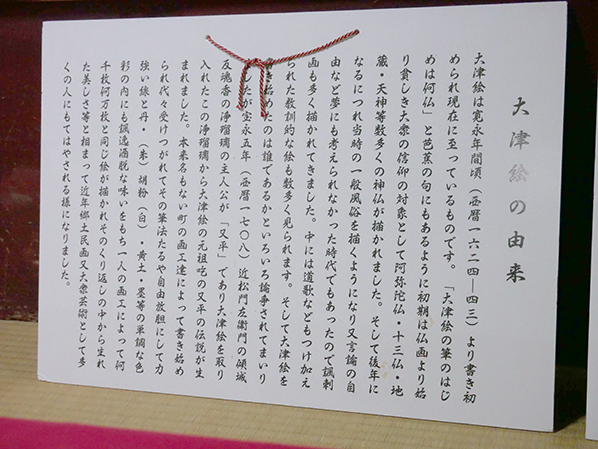 大津絵の由来
大津絵は寛永年間頃(西暦一六二四―四三)より書き初
められ現在に至っているものです。「大津絵の筆のはじ
めは何仏」と芭蕉の句にもあるように初期は仏画より始
り貧しき大衆の信仰の対象として阿弥陀仏・十三仏・地
蔵・天神等数多くの神仏が描かれました。そして後年に
なるにつれ当時の一般風俗を描くようになり又言論の自
由など夢にも考えられなかった時代でもあったので諷刺
画も多く描かれてきました。中には道歌などもつけ加え
られた教訓的な絵も数多く見られます。そして大津絵を
き始めたのは誰であるかといろいろ論争されてまいり
したが宝永五年(西暦一七〇八)近松門左衛門の傾城
反魂香の浄瑠璃の主人公が「又平」であり大津絵を取り
入れたこの浄瑠璃から大津絵の元祖吃の又平の伝説が生
まれました。本来名もない町の画工達によって書き始め
られ代々受けつがれてその筆法たるや自由放胆にして力
強い線と丹・(朱)胡粉(白)・黄土・墨等の単調な色
彩の内にも諷逸洒脱な味いをもち一人の画工によって何
千枚何万枚と同じ絵が描かれそのくり返しの中から生れ
た美しさ等と相まって近年郷土民画又大衆芸術として多
くの人にもてはやされる様になりました。